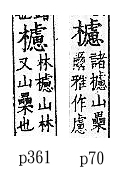 櫖
林櫖山林
又山櫐也
p361
櫖
諸櫖山櫐
爾雅作慮
p70